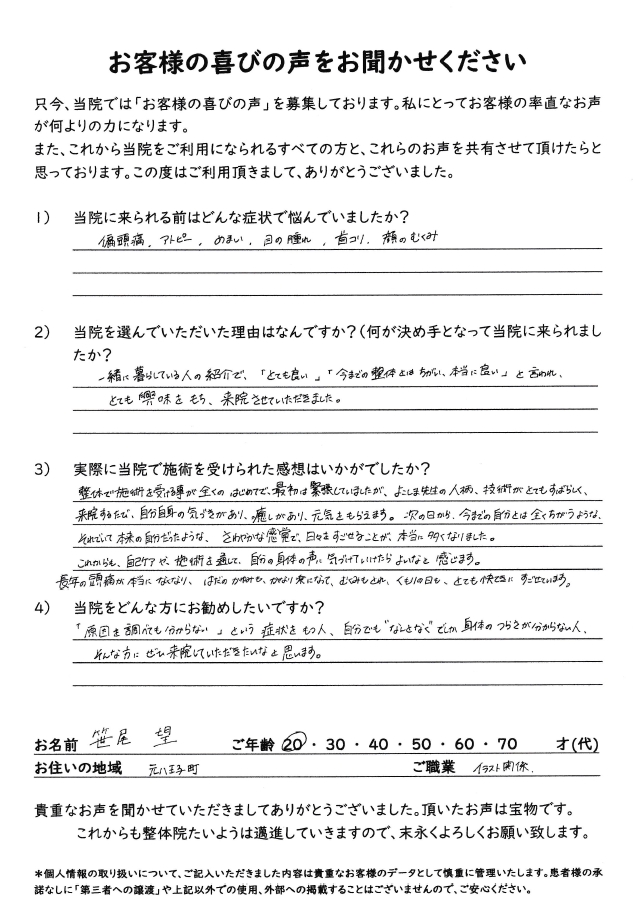 お客様の喜びの声をお聞かせください
只今、当院では「お客様の喜びの声」を募集しております。私にとってお客様の率直なお声
が何よりの力になります。
また、これから当院をご利用になられるすべての方と、これらのお声を共有させて頂けたらと
思っております。この度はご利用頂きまして、ありがとうございました。
1） 当院に来られる前はどんな症状で悩んでいましたか？
偏頭痛、アトピー、めまい、目の腫れ、首コリ、顔のむくみ
2） 当院を選んでいただいた理由はなんですか？（何が決め手となって当院に来られまし
たか？
一緒に暮らしている人の紹介で、「とても良い」「今までの整体とはちがい、本当に良い」と言われ、
とても興味をもち、来院させていただきました。
3） 実際に当院で施術を受けられた感想はいかがでしたか？
整体で施術を受ける事が全くのはじめてで、最初は緊張していましたが、よこしま先生の人柄、技術がとてもすばらしく、
来院するたび、自分自身の気づきがあり、癒しがあり、元気をもらえます。次の日から、今までの自分とは全くちがうような、
それでいて本来の自分だったような、さわやかな感覚で、日々をすごせることが、本当に多くなりました。
これからも、自己ケアや、施術を通して、自分の身体の声に気づけていけたらよいなと感じます。
長年の頭痛が本当になくなり、はだのかゆみも、かなり楽になって、むくみもとれ、くもりの日も、とても快適にすごせています。
4） 当院をどんな方にお勧めしたいですか？
「原因を調べても分からない」という症状をもつ人、自分でも"なんとなく"でしか身体のつらさが分からない人、
そんな方にぜひ来院していただきたいなと思います。
お名前 笹尾 望 ご年齢 20・30・40・50・60・70 才(代)
お住いの地域 元八王子町 ご職業 イラスト関係.
貴重なお声を聞かせていただきましてありがとうございました。頂いたお声は宝物です。
これからも整体院たいようは邁進していきますので、末永くよろしくお願い致します。
＊個人情報の取り扱いについて、ご記入いただきました内容は貴重なお客様のデータとして慎重に管理いたします。患者様の承
諾なしに「第三者への譲渡」や上記以外での使用、外部への掲載することはございませんので、ご安心ください。